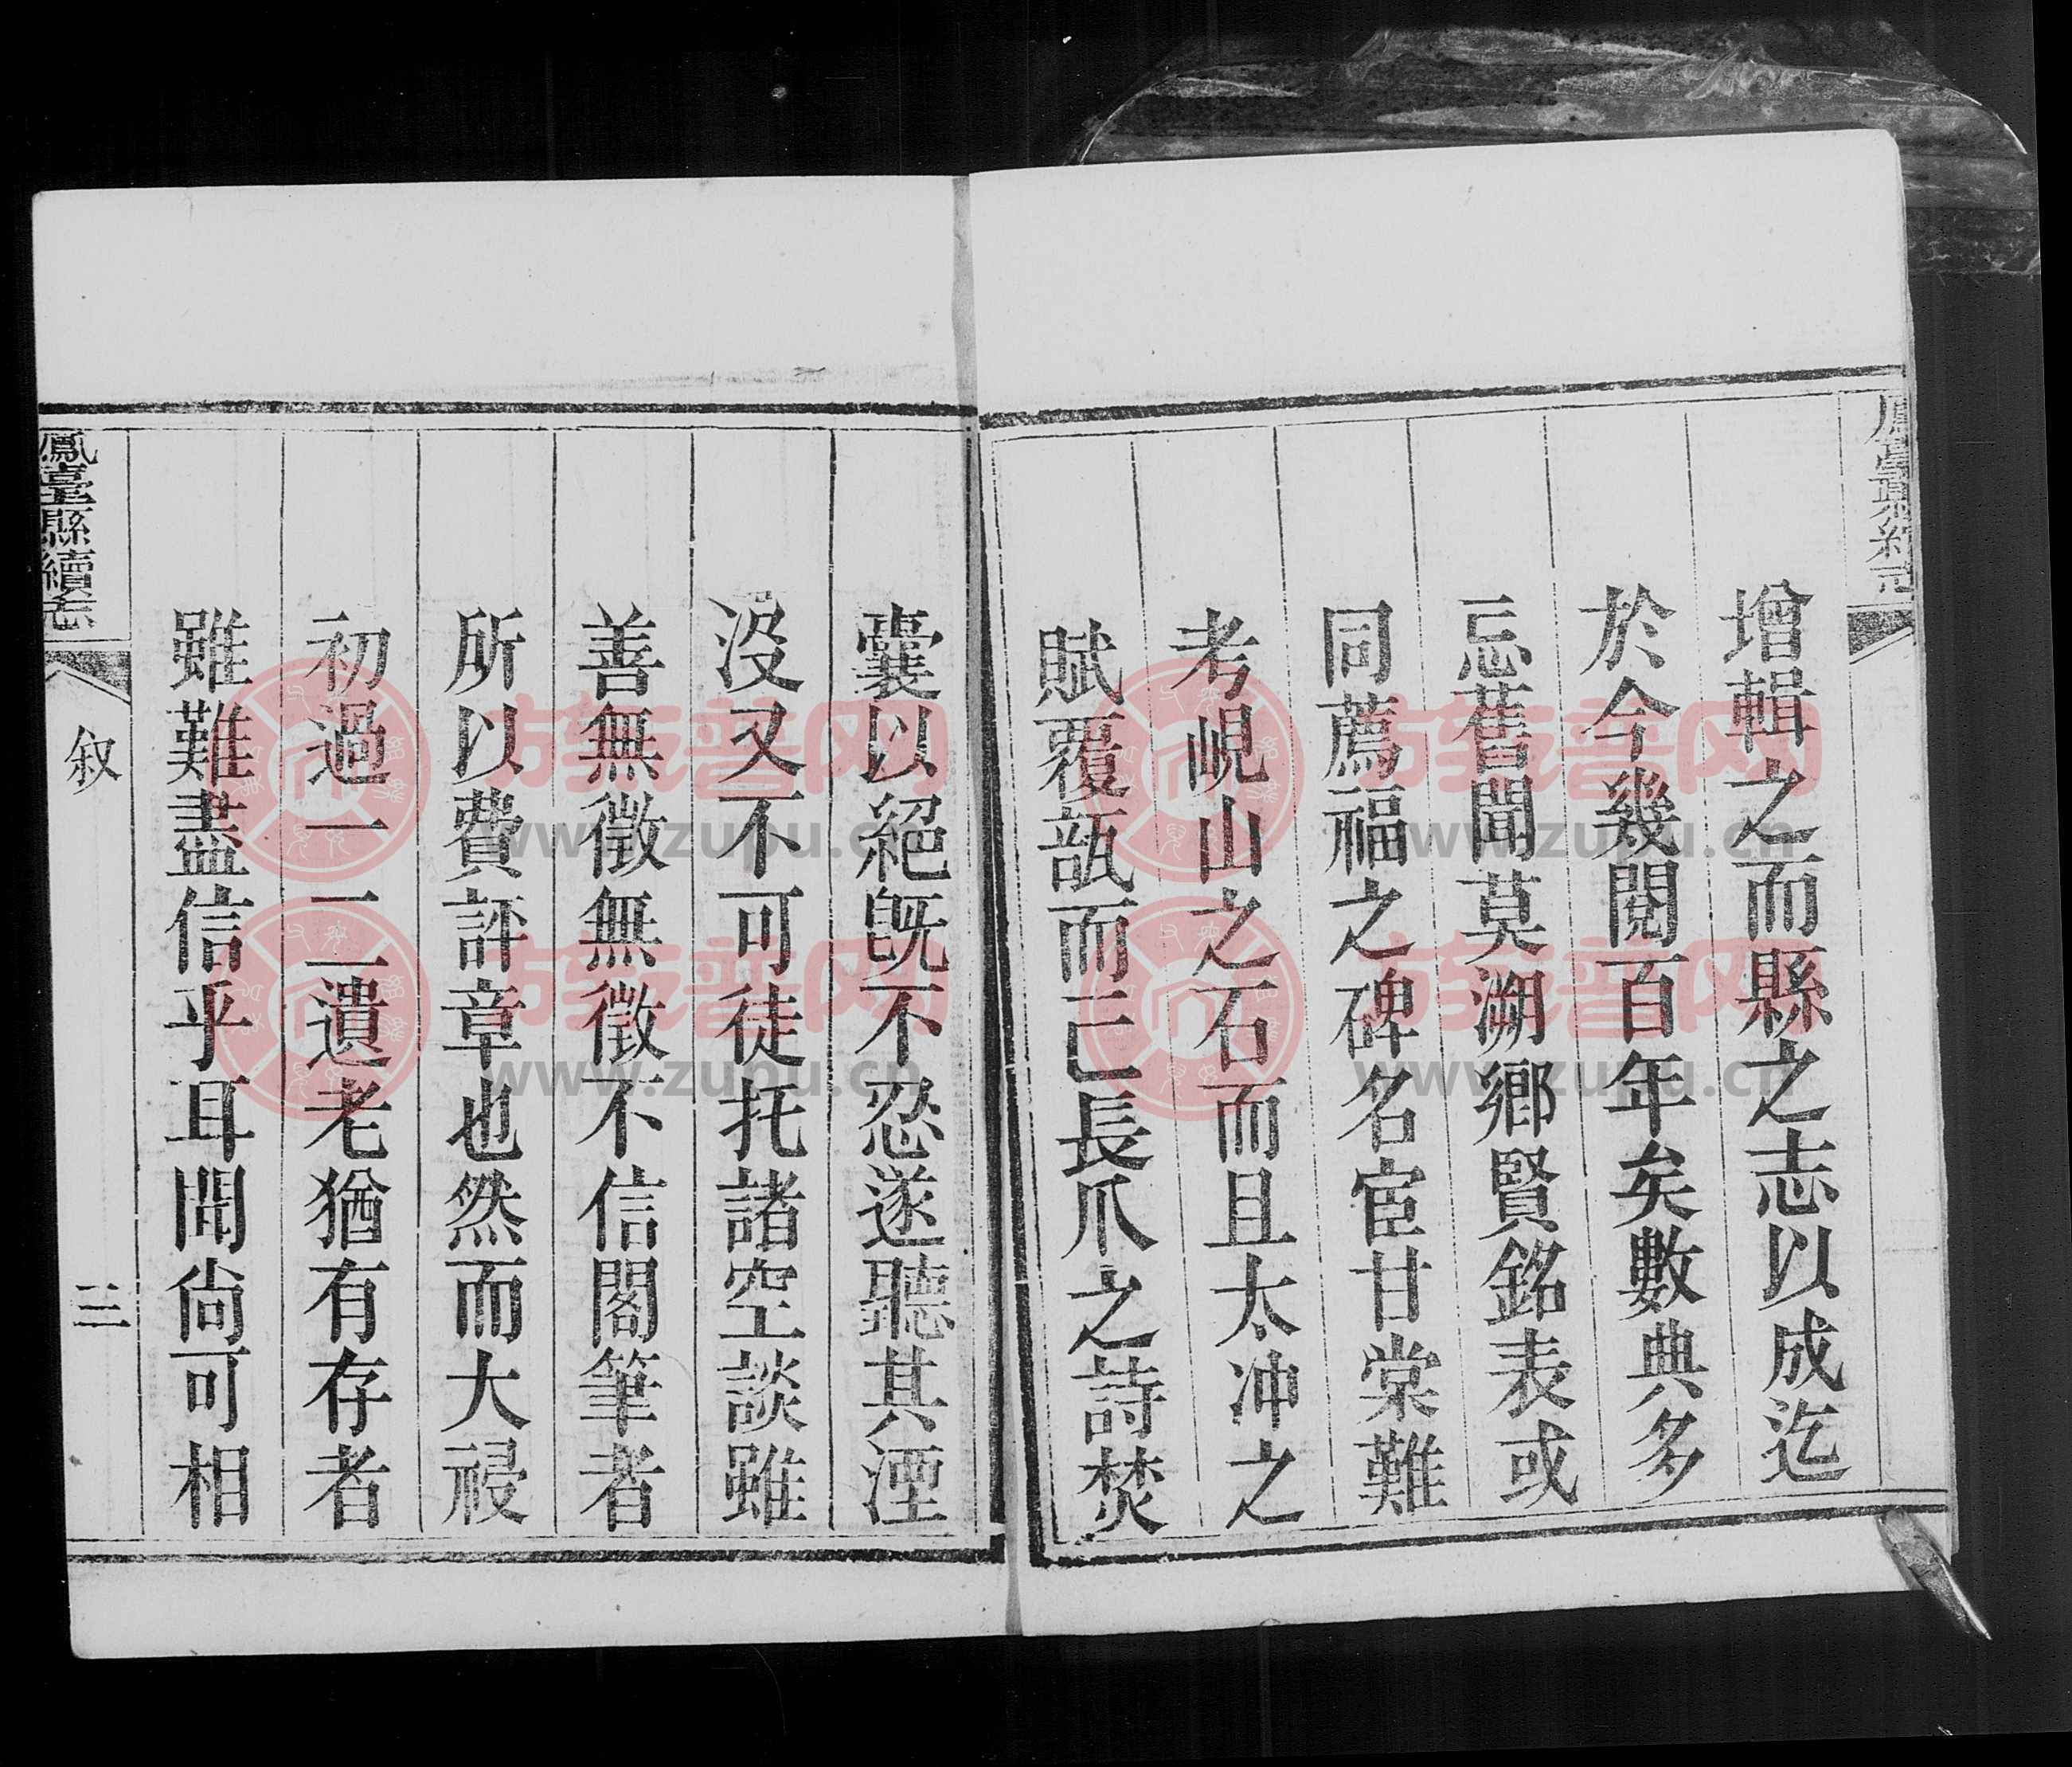 增輯之而縣之志以成迄
於今幾閱百年矣數典多
忘舊聞莫溯鄉賢銘表或
同薦福之碑名宦甘棠難
考峴山之石而且太冲之
賦覆瓿而已長爪之詩焚
囊以絕既不忍遂聽其湮
沒又不可徒托諸空談雖
善無徵無徵不信閣筆者
所以費評章也然而大祲
初過一二遺老猶有存者
雖難盡信乎耳聞尙可相
鳳臺縣續志
叙
三
族譜网
www.zupu.cn
族譜网
www.zupu.cn
族譜网
www.zupu.cn
族譜网
www.zupu.cn